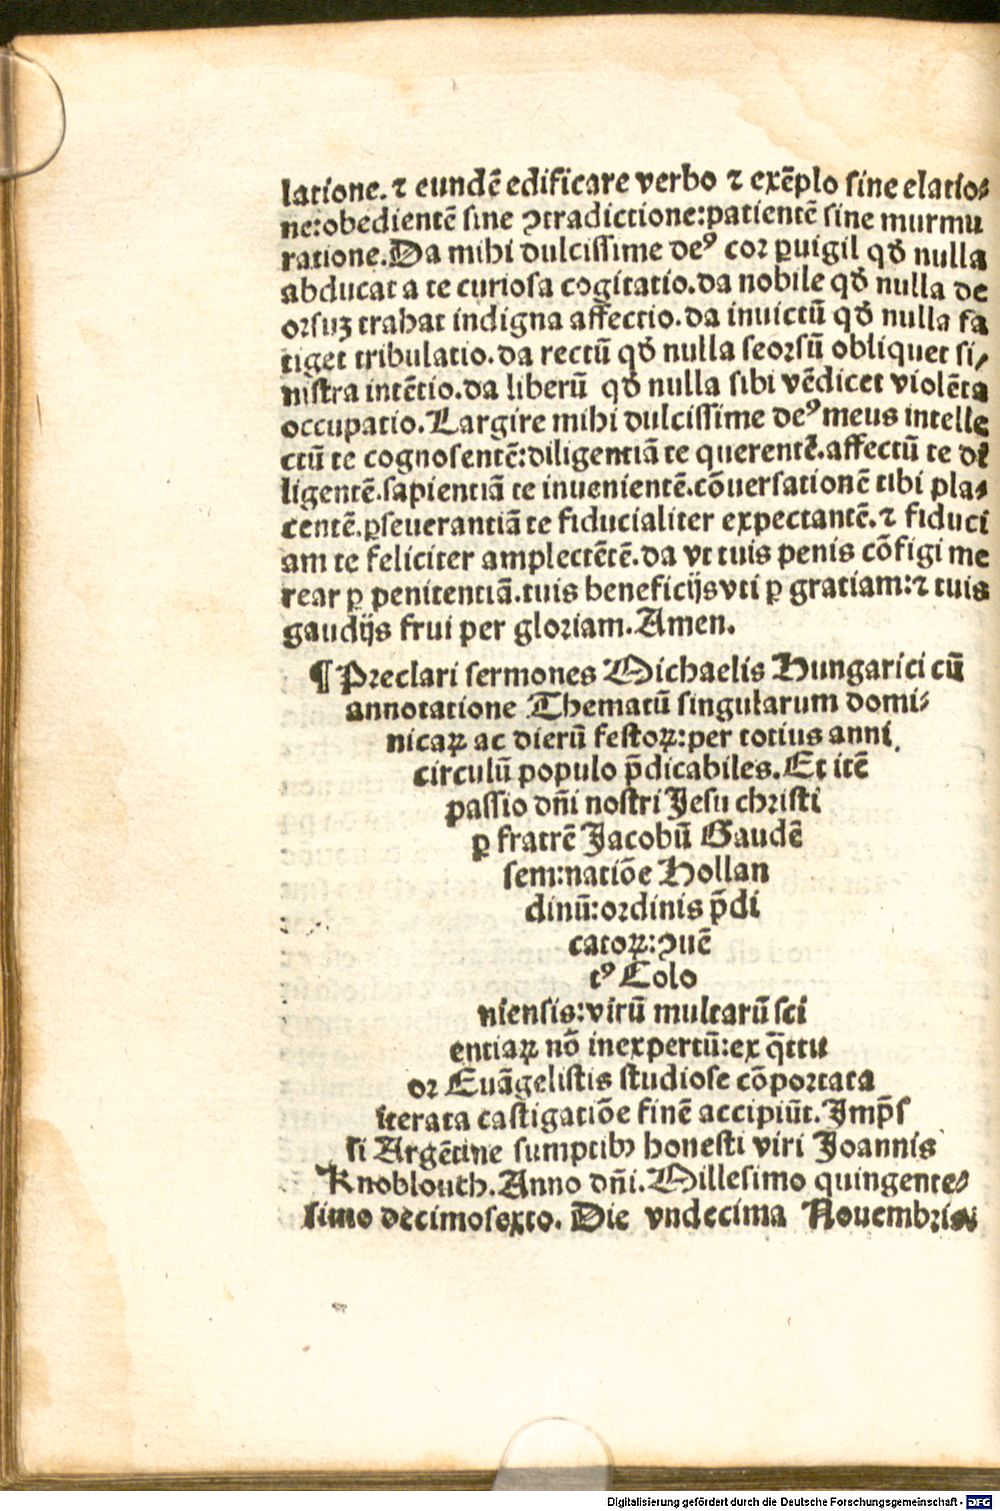 latione. ⁊ eundē edificare verbo ⁊ exēplo sine elatio⸗
ne:obedientē sine ꝯtradictione:patientē sine murmu
ratione. Da mihi dulcissime deꝰ cor ꝑuigil qđ nulla
abducat a te curiosa cogitatio. da nobile qđ nulla de
orsuꝫ trahat indigna affectio. da inuictū qđ nulla fa
tiget tribulatio. da rectū qđ nulla seorsū obliquet si⸗
nistra intētio. da liberū qđ nulla sibi vēdicet violēta
occupatio. Largire mihi dulcissime deꝰ meus intelle
ctū te cognosentē:diligentiā te querentē. affectū te di
ligentē. sapientiā te inuenientē. cōuersationē tibi pla⸗
centē. ꝑseuerantiā te fiducialiter expectantē. ⁊ fiduci
am te feliciter amplectētē. da vt tuis penis cōfigi me
rear ꝑ penitentiā. tuis beneficijs vti ꝑ gratiam: ⁊ tuis
gaudijs frui per gloriam. Amen.
¶ Preclari sermones Michaelis Hungarici cū
annotatione Thematū singularum domi⸗
nicaꝝ ac dierū festoꝝ:per totius anni
circulū populo p̄dicabiles. Et itē
passio dn̄i nostri Jesu christi
ꝑ fratrē Jacobū Gaudē
sem:natiōe Hollan
dinū:ordinis p̄di
catoꝝ:ꝯuē
tꝰ Colo
niensis:virū multarū sci
entiaꝝ nō inexpertū:ex q̄ttu
or Euāgelistis studiose cōportata
iterata castigatiōe finē accipiūt. Jmp̄s
si Argētine sumptibꝰ honesti viri Joannis
Knoblouch. Anno dn̄i. Millesimo quingente⸗
simo decimosexto. Die vndecima Nouembris.
Digitalisierung gefördert durch die Deutsche Forschungsgemeinschaft - DFG